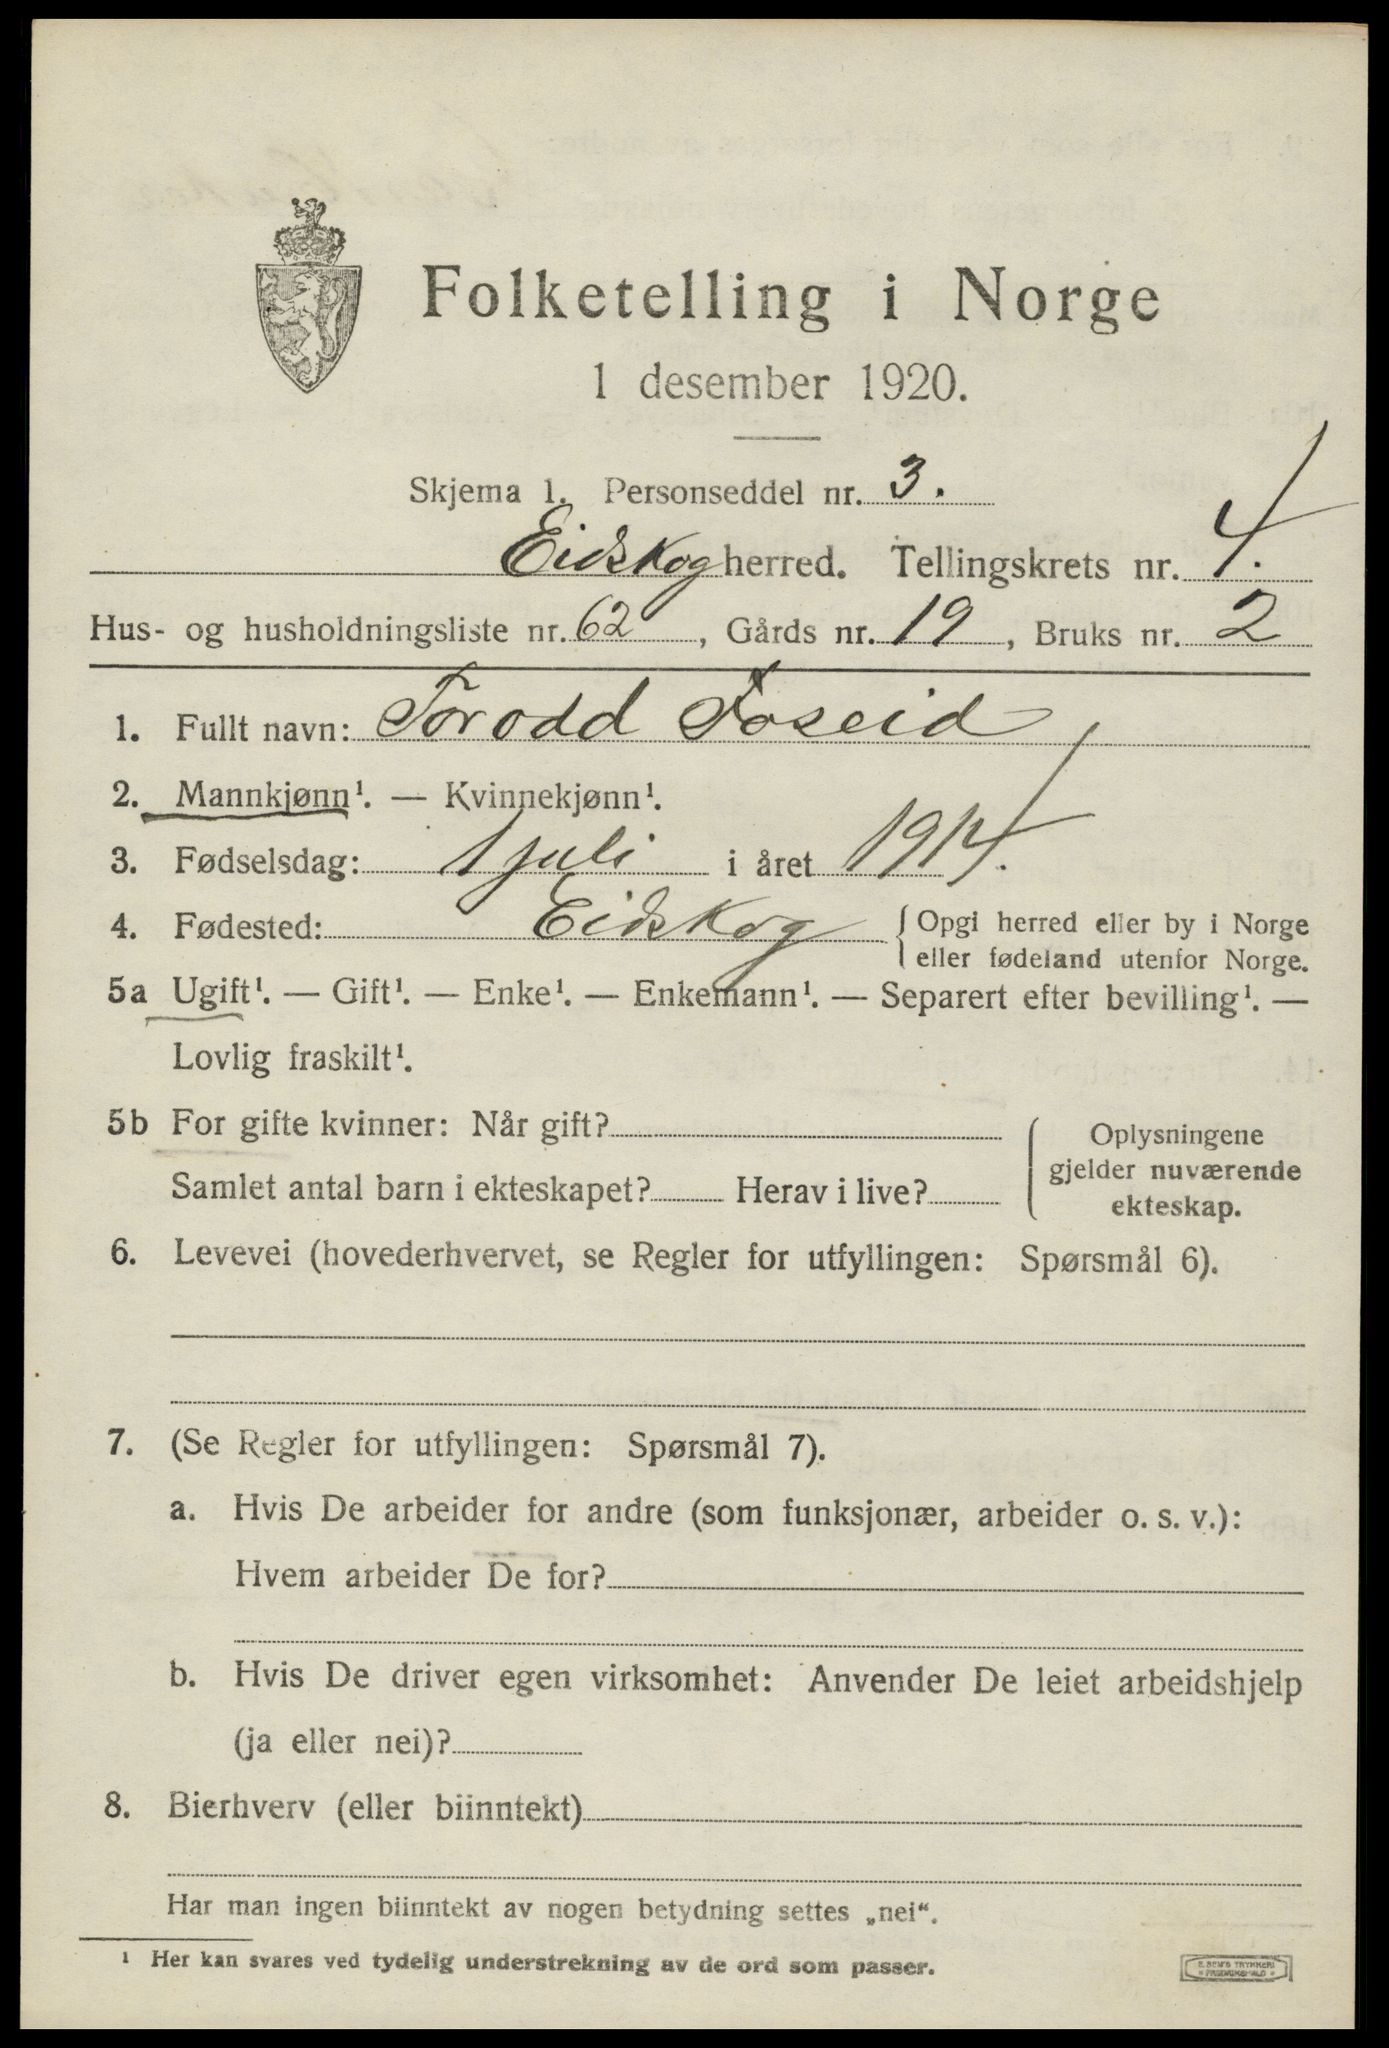 Folketelling i Norge
1 desember 1920.
Skjema 1. Personseddel nr. 3.
Eidskog herred. Tellingskrets nr. 4.
Hus- og husholdningsliste nr. 62, Gårds nr. 19, Bruks nr. 2
1. Fullt navn: Torodd Foseid
2. Mannkjønn¹. — Kvinnekjønn¹.
3. Fødselsdag: 1 juli i året 1914.
4. Fødested: Eidskog { Opgi herred eller by i Norge
eller fødeland utenfor Norge.
5a Ugift¹. — Gift¹. — Enke¹. — Enkemann¹. — Separert efter bevilling¹. —
Lovlig fraskilt¹.
5b For gifte kvinner: Når gift?
Samlet antal barn i ekteskapet? Herav i live?
Oplysningene
gjelder nuværende
ekteskap.
6. Levevei (hovederhvervet, se Regler for utfyllingen: Spørsmål 6).
7. (Se Regler for utfyllingen: Spørsmål 7).
a. Hvis De arbeider for andre (som funksjonær, arbeider o. s. v.):
Hvem arbeider De for?
b. Hvis De driver egen virksomhet: Anvender De leiet arbeidshjelp
(ja eller nei)?
8. Bierhverv (eller biinntekt)
Har man ingen biinntekt av nogen betydning settes „nei“.
¹ Her kan svares ved tydelig understrekning av de ord som passer.